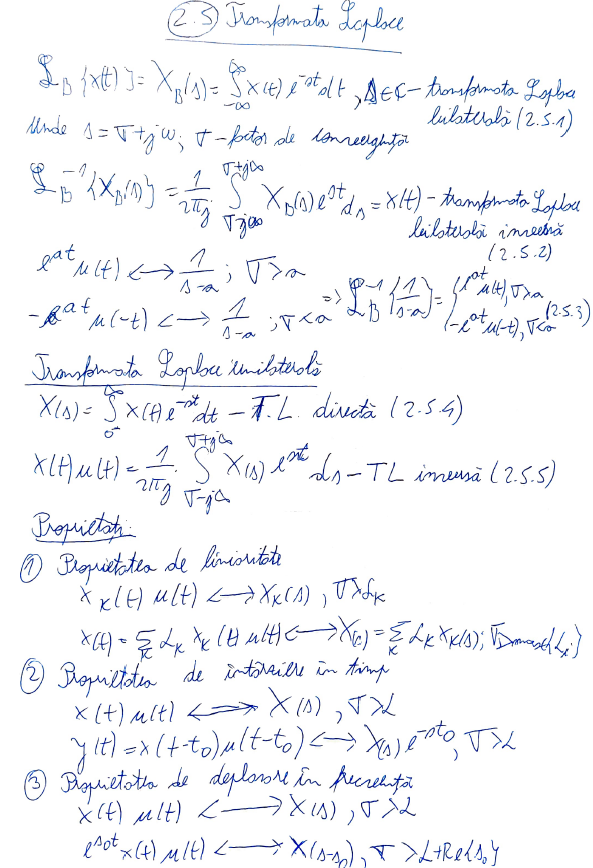 2.5 Transformata Laplace
ℒ_B{x(t)} = X_B(s) = ∫_{-∞}^{∞} x(t) e^{-st} dt, s∈ℂ - transformata Laplace
bilaterală (2.5.1)
Unde s = σ+jω; σ - factor de convergență
ℒ_B^{-1}{X_B(s)} = 1/(2πj) ∫_{σ-j∞}^{σ+j∞} X_B(s) e^{st} ds = x(t) - transformata Laplace
bilaterală inversă
(2.5.2)
e^{at} u(t) ⟷ 1/(s-a); σ>a
-e^{at} u(-t) ⟷ 1/(s-a); σ<a => ℒ_B^{-1}{1/(s-a)} = { e^{at} u(t), σ>a ; -e^{at} u(-t), σ<a (2.5.3)
Transformata Laplace unilaterală
X(s) = ∫_{0^-}^{∞} x(t) e^{-st} dt - T.L. directă (2.5.4)
x(t) u(t) = 1/(2πj) · ∫_{σ-j∞}^{σ+j∞} X(s) e^{st} ds - TL inversă (2.5.5)
Proprietăți:
① Proprietatea de liniaritate
x_k(t) u(t) ⟷ X_k(s), σ>α_k
x(t) = Σ_k α_k x_k(t) u(t) ⟷ X(s) = Σ_k α_k X_k(s); σ>max{α_i}
② Proprietatea de întârziere în timp
x(t) u(t) ⟷ X(s), σ>α
y(t) = x(t-t_0) u(t-t_0) ⟷ X(s) e^{-st_0}, σ>α
③ Proprietatea de deplasare în frecvență
x(t) u(t) ⟷ X(s), σ>α
e^{s_0t} x(t) u(t) ⟷ X(s-s_0), σ>α+Re{s_0}